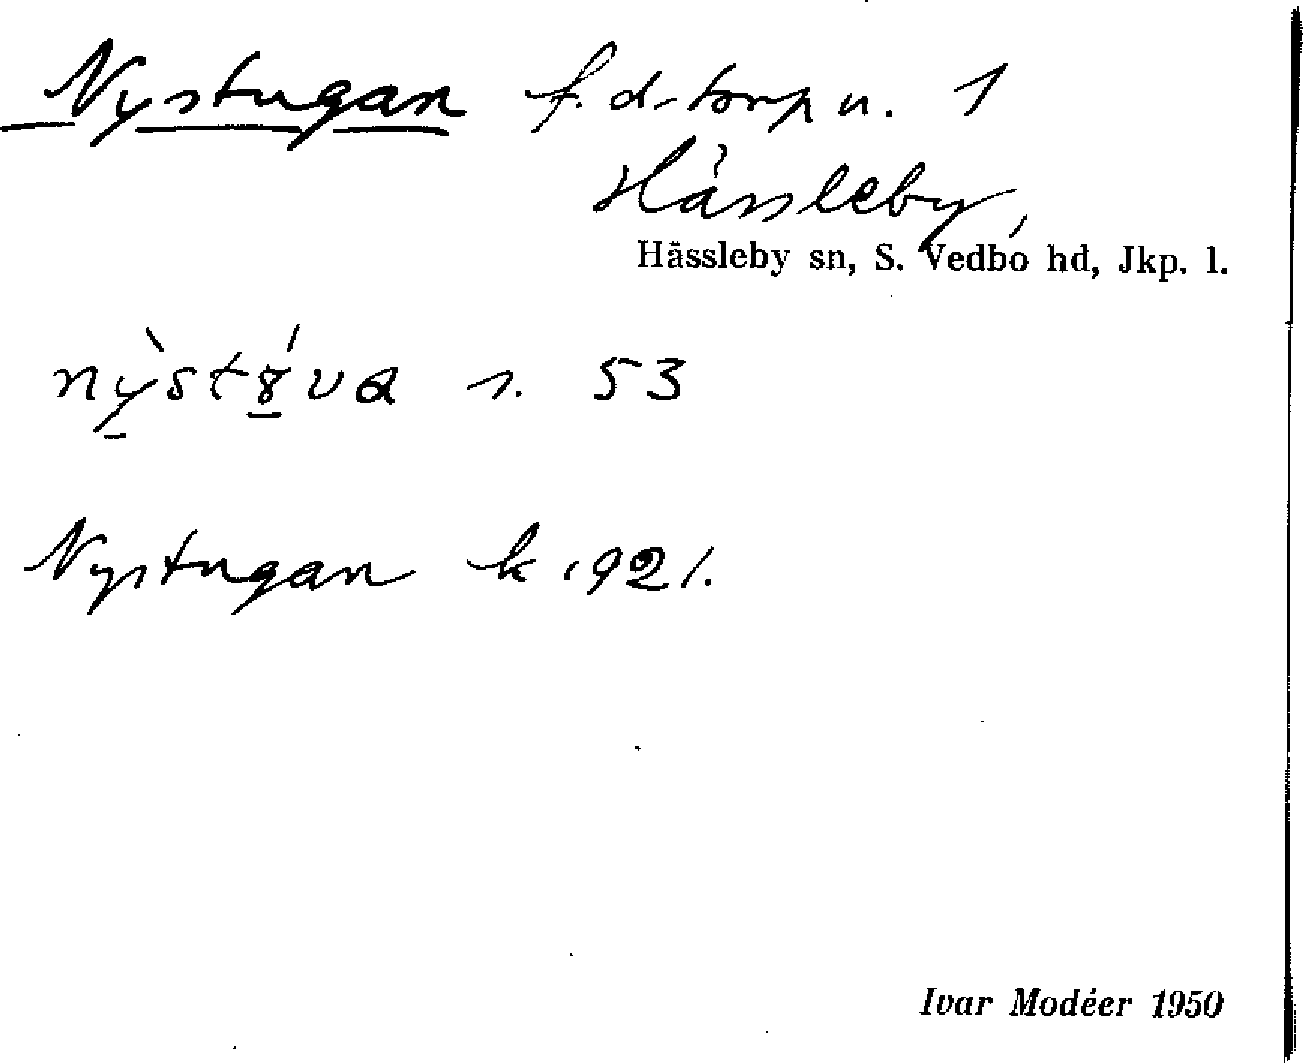 Nystugan f.d. torp u. 1
Hässleby,
Hässleby sn, S. Vedbo hd, Jkp. l.
s. 53
Nystugan k 1921.
Ivar Modéer 1950